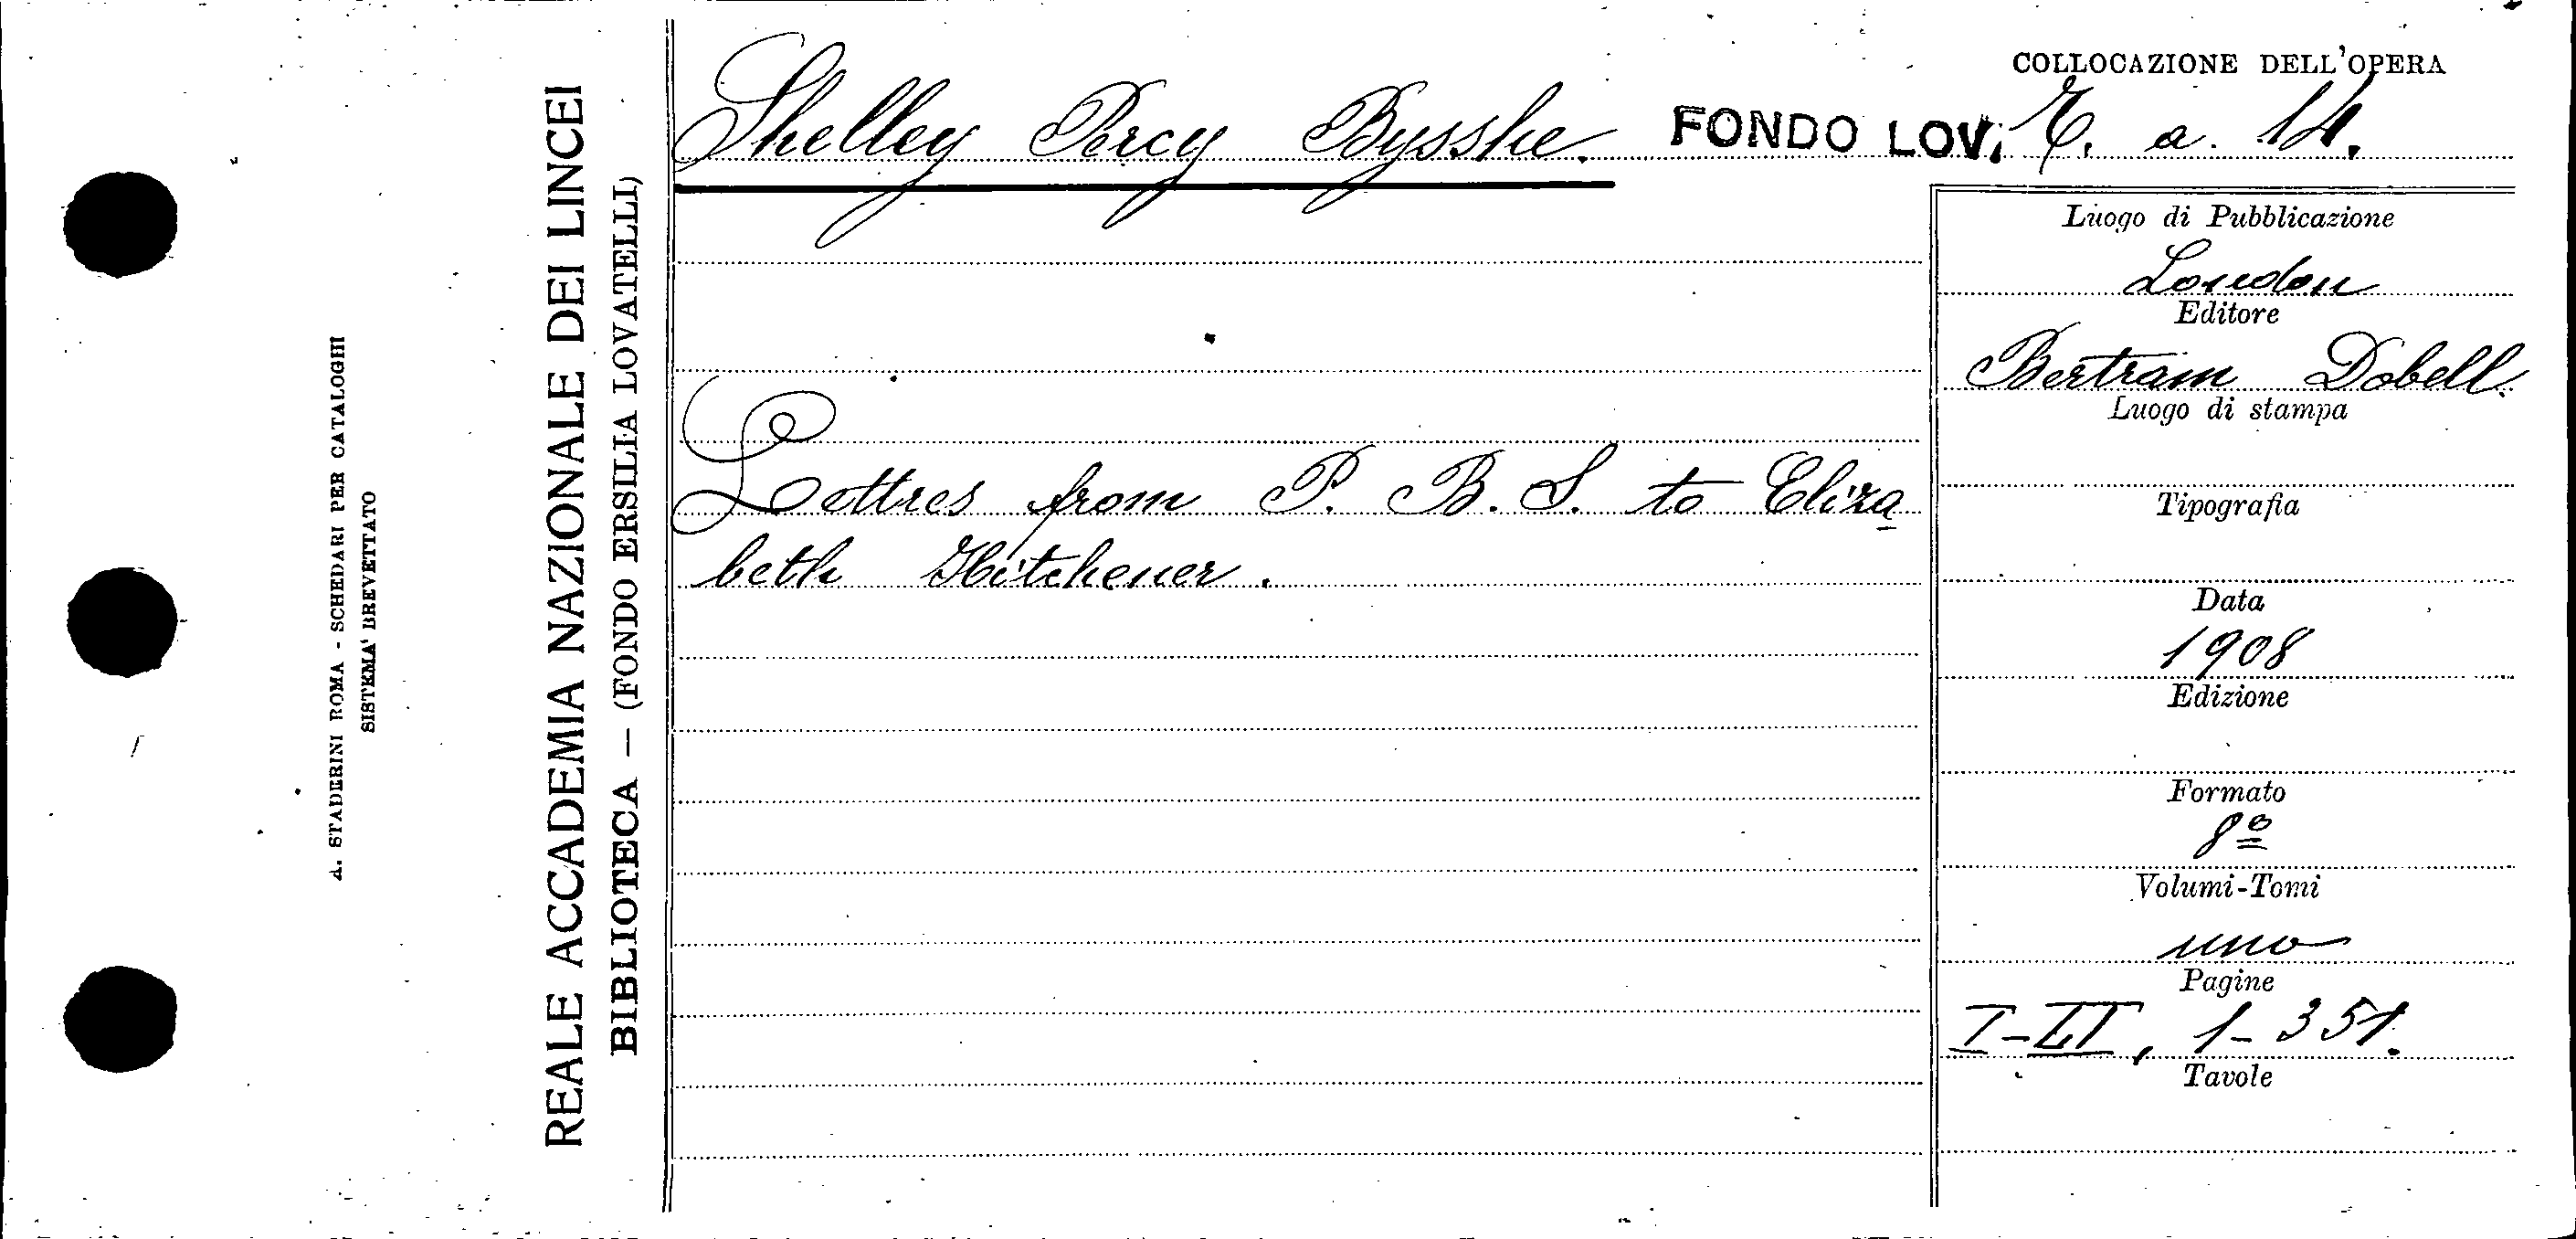 A. STADERINI ROMA - SCHEDARI PER CATALOGHI
SISTEMA BREVETTATO
REALE ACCADEMIA NAZIONALE DEI LINCEI
BIBLIOTECA — (FONDO ERSILIA LOVATELLI)
Shelley Percy Bysshe.
COLLOCAZIONE DELL'OPERA
FONDO LOV. a. 14.
Lettres from P. B. S. to Eliza
beth Hitchener.
Luogo di Pubblicazione
London
Editore
Bertram Dobell.
Luogo di stampa
Tipografia
Data
1908
Edizione
Formato
8º
Volumi-Tomi
uno
Pagine
1-351.
Tavole